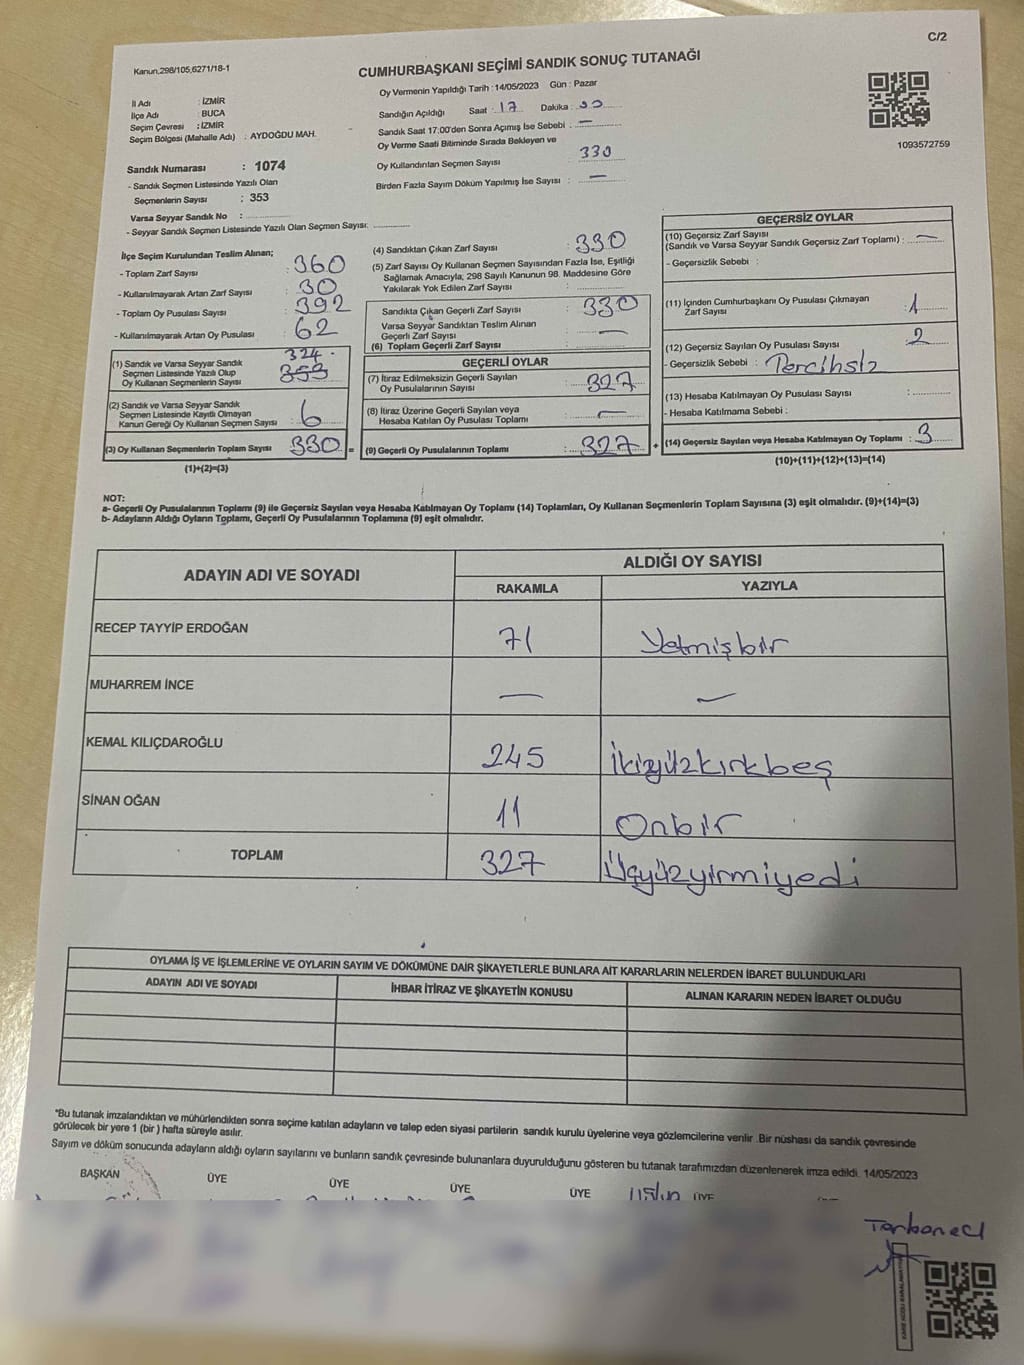 C/2
Kanun,298/105,6271/18-1
CUMHURBAŞKANI SEÇİMİ SANDIK SONUÇ TUTANAĞI
Oy Vermenin Yapıldığı Tarih : 14/05/2023 Gün : Pazar
İl Adı : İZMİR
İlçe Adı : BUCA
Seçim Çevresi : İZMİR
Seçim Bölgesi (Mahalle Adı) : AYDOĞDU MAH.
Sandığın Açıldığı Saat : 17 Dakika : 00
Sandık Saat 17:00'den Sonra Açımış İse Sebebi : —
Oy Verme Saati Bitiminde Sırada Bekleyen ve
Oy Kullandırılan Seçmen Sayısı 330
Birden Fazla Sayım Döküm Yapılmış İse Sayısı : —
1093572759
Sandık Numarası : 1074
- Sandık Seçmen Listesinde Yazılı Olan
Seçmenlerin Sayısı : 353
Varsa Seyyar Sandık No :
- Seyyar Sandık Seçmen Listesinde Yazılı Olan Seçmen Sayısı:
İlçe Seçim Kurulundan Teslim Alınan;
- Toplam Zarf Sayısı : 360
- Kullanılmayarak Artan Zarf Sayısı : 30
- Toplam Oy Pusulası Sayısı : 392
- Kullanılmayarak Artan Oy Pusulası : 62
(1) Sandık ve Varsa Seyyar Sandık
Seçmen Listesinde Yazılı Olup
Oy Kullanan Seçmenlerin Sayısı
324
353
(2) Sandık ve Varsa Seyyar Sandık
Seçmen Listesinde Kayıtlı Olmayan
Kanun Gereği Oy Kullanan Seçmen Sayısı : 6
(3) Oy Kullanan Seçmenlerin Toplam Sayısı 330 =
(1)+(2)=(3)
(4) Sandıktan Çıkan Zarf Sayısı : 330
(5) Zarf Sayısı Oy Kullanan Seçmen Sayısından Fazla İse, Eşitliği
Sağlamak Amacıyla, 298 Sayılı Kanunun 98. Maddesine Göre
Yakılarak Yok Edilen Zarf Sayısı :
Sandıkta Çıkan Geçerli Zarf Sayısı : 330
Varsa Seyyar Sandıktan Teslim Alınan
Geçerli Zarf Sayısı : —
(6) Toplam Geçerli Zarf Sayısı :
GEÇERLİ OYLAR
(7) İtiraz Edilmeksizin Geçerli Sayılan
Oy Pusulalarının Sayısı : 327
(8) İtiraz Üzerine Geçerli Sayılan veya
Hesaba Katılan Oy Pusulası Toplamı : —
(9) Geçerli Oy Pusulalarının Toplamı : 327 +
GEÇERSİZ OYLAR
(10) Geçersiz Zarf Sayısı
(Sandık ve Varsa Seyyar Sandık Geçersiz Zarf Toplamı) : —
- Geçersizlik Sebebi :
(11) İçinden Cumhurbaşkanı Oy Pusulası Çıkmayan
Zarf Sayısı : 1
(12) Geçersiz Sayılan Oy Pusulası Sayısı : 2
- Geçersizlik Sebebi : Tercihsiz
(13) Hesaba Katılmayan Oy Pusulası Sayısı :
- Hesaba Katılmama Sebebi :
(14) Geçersiz Sayılan veya Hesaba Katılmayan Oy Toplamı : 3
(10)+(11)+(12)+(13)=(14)
NOT:
a- Geçerli Oy Pusulalarının Toplamı (9) ile Geçersiz Sayılan veya Hesaba Katılmayan Oy Toplamı (14) Toplamları, Oy Kullanan Seçmenlerin Toplam Sayısına (3) eşit olmalıdır. (9)+(14)=(3)
b- Adayların Aldığı Oyların Toplamı, Geçerli Oy Pusulalarının Toplamına (9) eşit olmalıdır.
ADAYIN ADI VE SOYADI
ALDIĞI OY SAYISI
RAKAMLA YAZIYLA
RECEP TAYYİP ERDOĞAN 71 Yetmişbir
MUHARREM İNCE — —
KEMAL KILIÇDAROĞLU 245 İkiyüzkırkbeş
SİNAN OĞAN 11 Onbir
TOPLAM 327 Üçyüzyirmiyedi
OYLAMA İŞ VE İŞLEMLERİNE VE OYLARIN SAYIM VE DÖKÜMÜNE DAİR ŞİKAYETLERLE BUNLARA AİT KARARLARIN NELERDEN İBARET BULUNDUKLARI
ADAYIN ADI VE SOYADI İHBAR İTİRAZ VE ŞİKAYETİN KONUSU ALINAN KARARIN NEDEN İBARET OLDUĞU
*Bu tutanak imzalandıktan ve mühürlendikten sonra seçime katılan adayların ve talep eden siyasi partilerin sandık kurulu üyelerine veya gözlemcilerine verilir .Bir nüshası da sandık çevresinde
görülecek bir yere 1 (bir ) hafta süreyle asılır.
Sayım ve döküm sonucunda adayların aldığı oyların sayılarını ve bunların sandık çevresinde bulunanlara duyurulduğunu gösteren bu tutanak tarafımızdan düzenlenerek imza edildi. 14/05/2023
BAŞKAN ÜYE ÜYE ÜYE ÜYE ÜYE